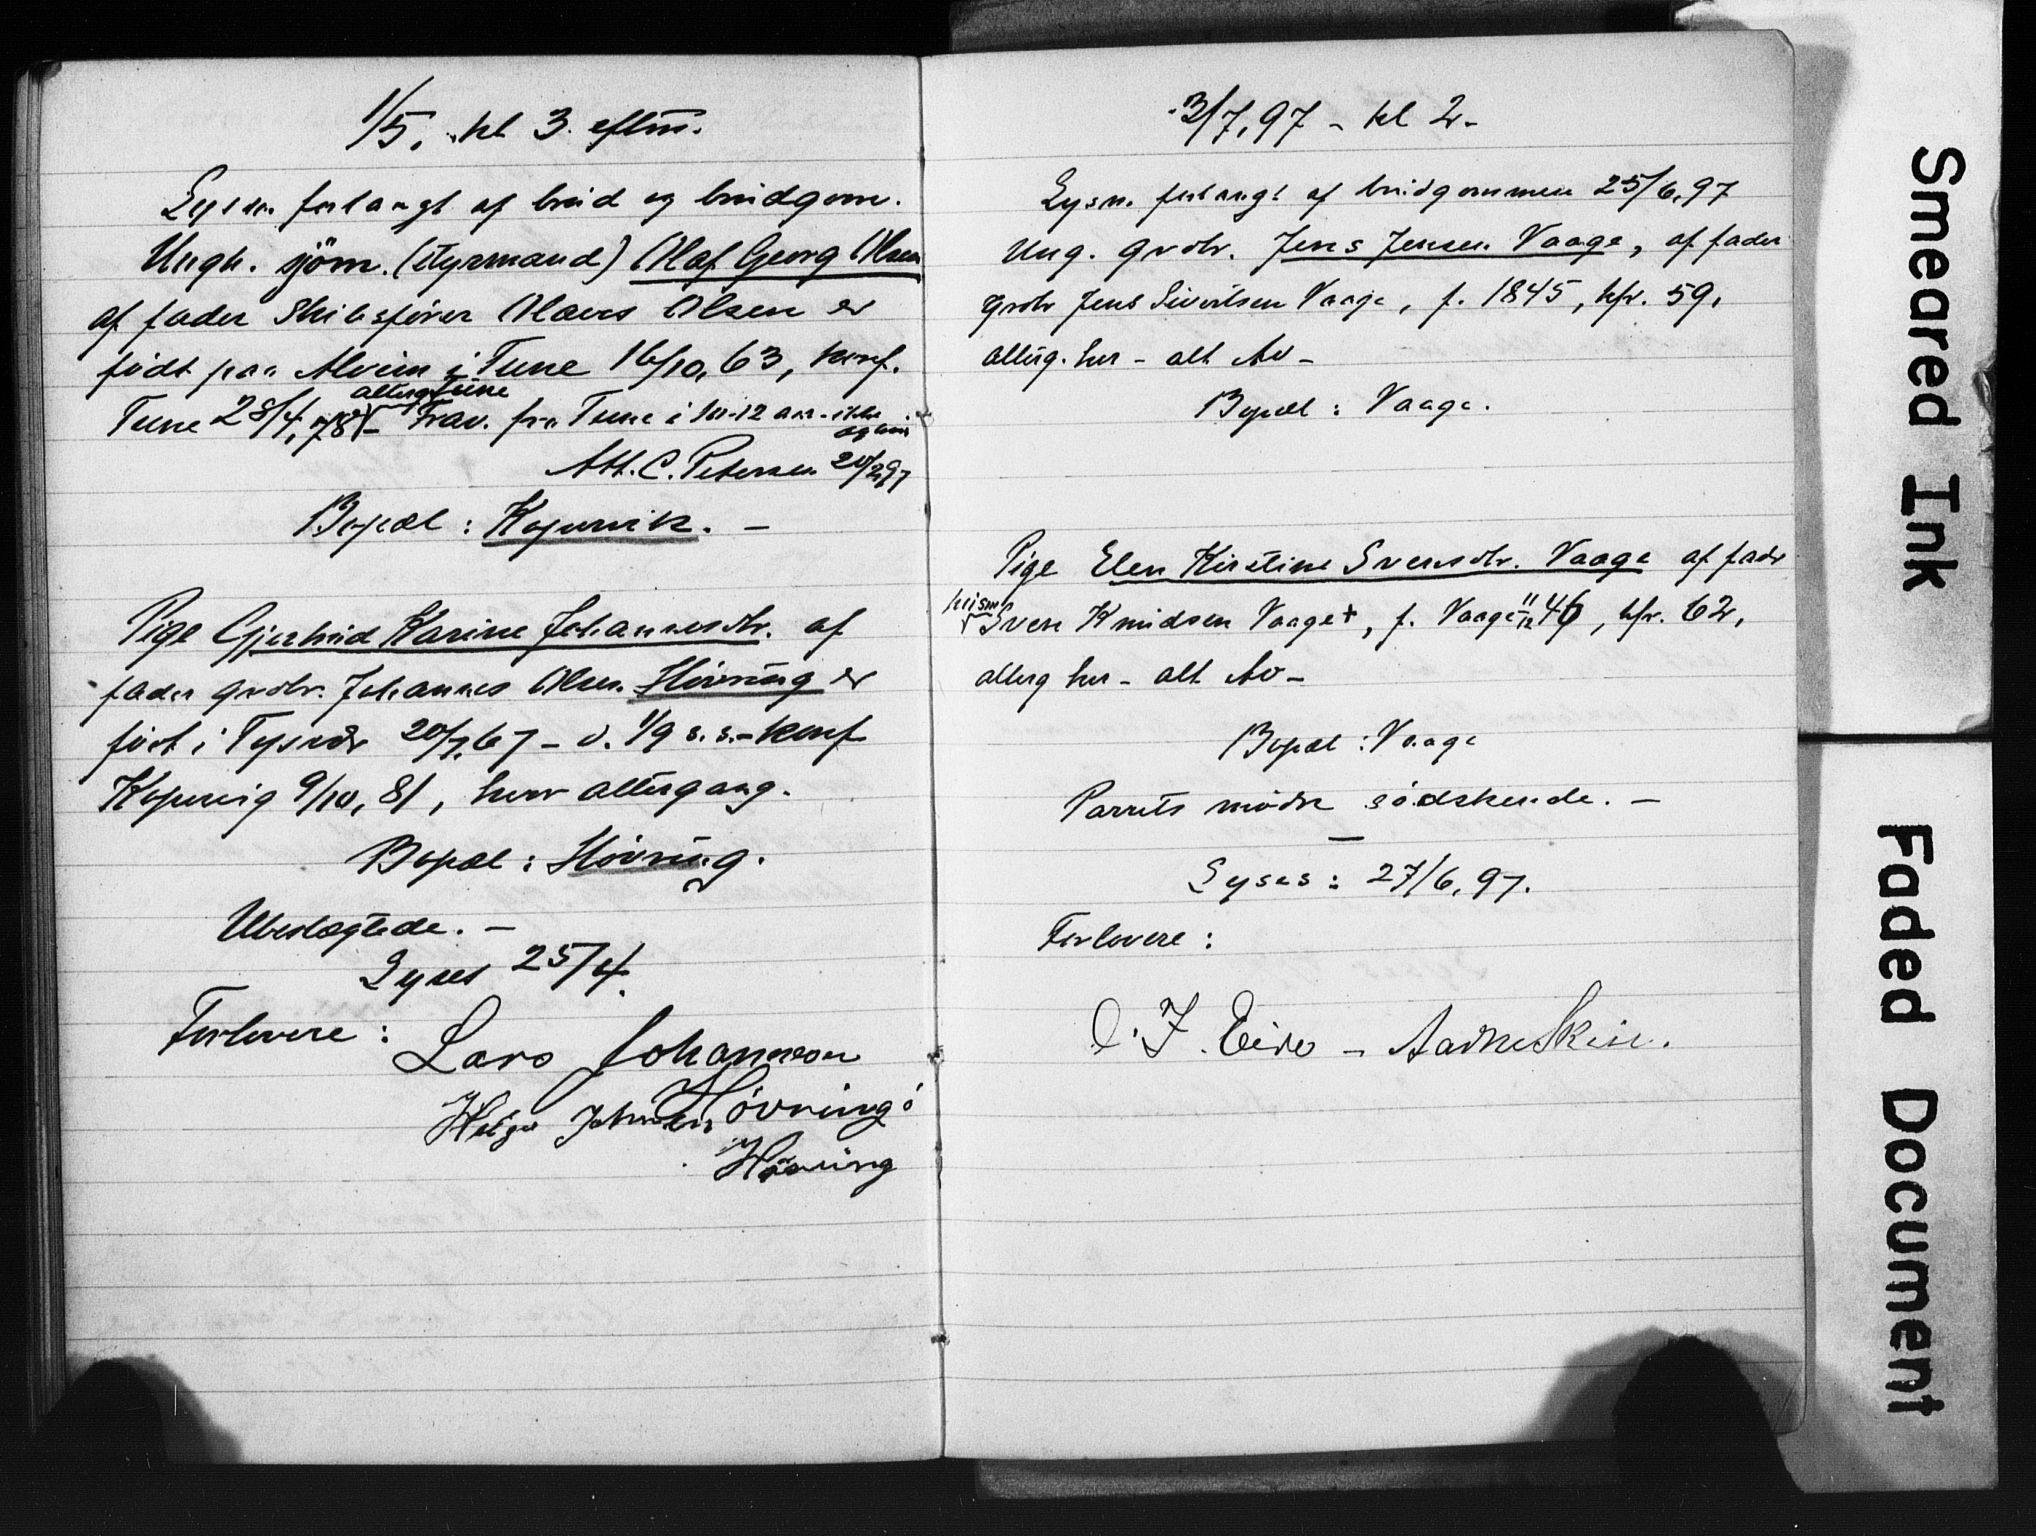 1/5. kl 3. eftm.
Lysn. forlangt af brud og brudgom.
Ungk. sjöm. (Styrmand) Olaf Georg Olsen
af fader Skibsfører Olaves Olsen er
født paa Alvim i Tune 16/10, 63, konf.
alterg. Tune
Tune 28/4, 78 - Frav. fra Tune i 10-12 aar - ikke
Att. C. Petersen 20/2 97
Bopæl : Kopervik. -
Pige Gjertrud Karine Johannesdtr. af
fader grdbr. Johannes Olsen Hövring er
født i Tysvær 20/7, 67 - d. 1/9 s. s. - konf
Kopervig 9/10, 81, hvor altergang.
Bopæl : Hövring.
Ubeslægtede. -
Lyses 25/4.
Forlovere :
Lars Johannesen
Hövring
Helge Johnsen
Hövring
3/7, 97 - kl 2 -
Lysn. forlangt af brudgommen 25/6, 97
Ung. grdbr. Jens Jensen Vaage, af fader
grdbr Jens Sivertsen Vaage, f. 1845, kfr. 59,
alterg. her - alt Av -
Bopæl : Vaage.
Pige Elen Kirstine Svensdtr. Vaage af fader
husm
Sven Knudsen Vaage +, f. Vaage 11/12 46, kfr. 62,
alterg her - alt Av -
Bopæl : Vaage
Parrets mødre sødskende. -
Lyses : 27/6, 97.
Forlovere :
O. J. Eide - Aadne Skeie.
Smeared Ink
Faded Document